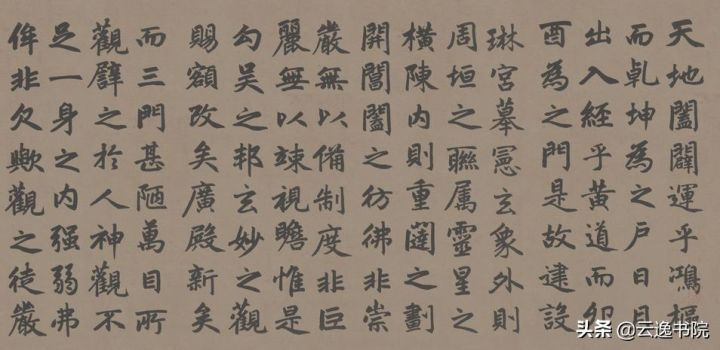 天地闔闢運乎鴻樞
而乹坤為之戶日月
出入經乎黃道而卯
酉為之門是故建設
琳宮摹憲玄象外則
周垣之聯属靈星之
橫陳内則重闥之劃
開閶闔之彷彿非崇
嚴無以備制度非巨
麗無以竦視瞻惟是
勾吴之邦玄妙之觀
賜額改矣廣殿新矣
而三門甚陋萬目所
觀譬之於人神觀不
足一身之内强弱弗
侔非欠歟觀之徒嚴
头条 @云逸书院